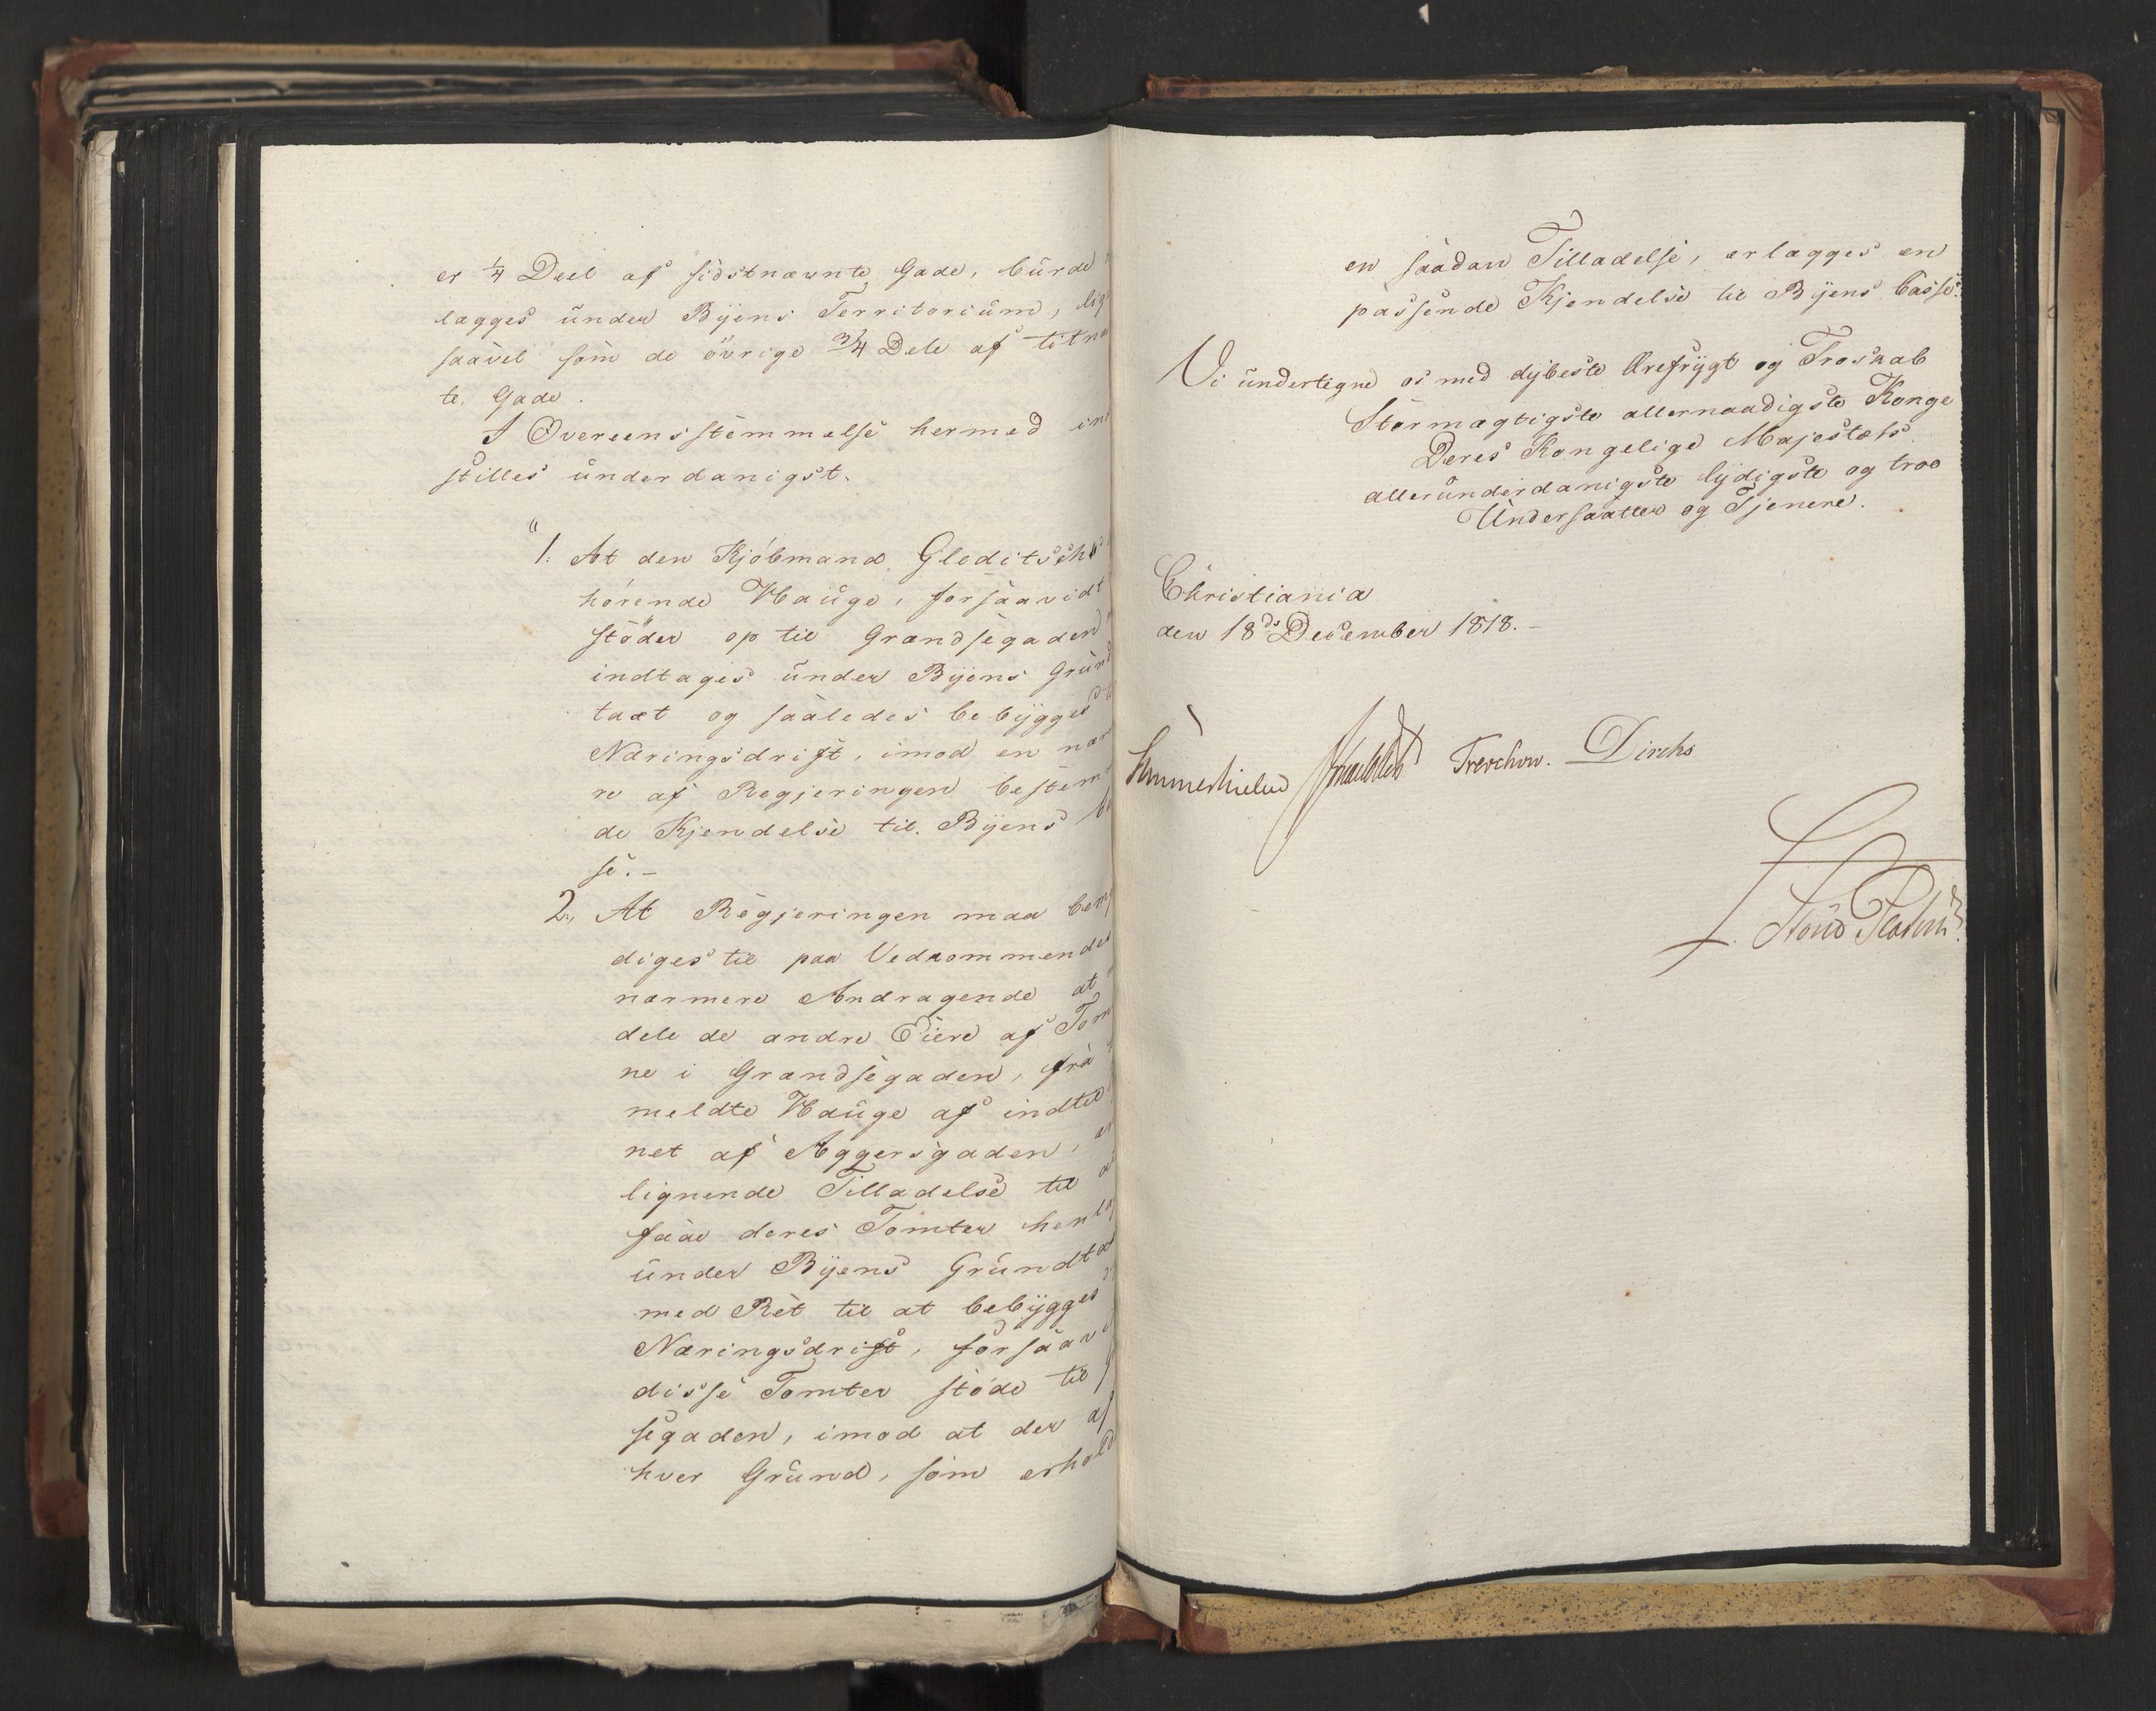 er 1/4 Deel af sidstnævnte Gade, burde
lægges under Byens Territorium, lige
saavel som de övrige 3/4 Dele af titnæ
te Gade.
I Overeensstemmelse hermed ind
stilles underdanigst.
"1. At den Kjöbmand Gleditsch
hörende Hauge, forsaavidt
stöder op til Grændsegaden
indtages under Byens Grund
taxt og saaledes bebygges
Næringsdrift, imod en nær
re af Regjeringen bestem
de Kjendelse til Byens
se.-
2., At Regjeringen maa bemyn
diges til paa Vedkommendes
nærmere Andragende at
dele de andre Eiere af Tom
ne i Grændsegaden, fra
meldte Hauge af indtil
net af Aggersgaden,
lignende Tilladelse til at
faae deres Tomter henlag
under Byens Grundtax
med Ret til at bebygges
Næringsdrift, forsaavi
disse Tomter stöde til
segaden, imod at der af
hver Grund, som erhold
en saadan Tilladelse, erlægges en
passende Kjendelse til Byens Casse.
Vi undertegne os med dybeste Ærefrygt og Troskab
Stormægtigste allernaadigste Konge
Deres Kongelige Majestæts
allerunderdanigste lydigste og troe
Undersaatter og Tjenere.
Christiania
den 18de December 1818.-
Sommerhielm Treschow. Diriks